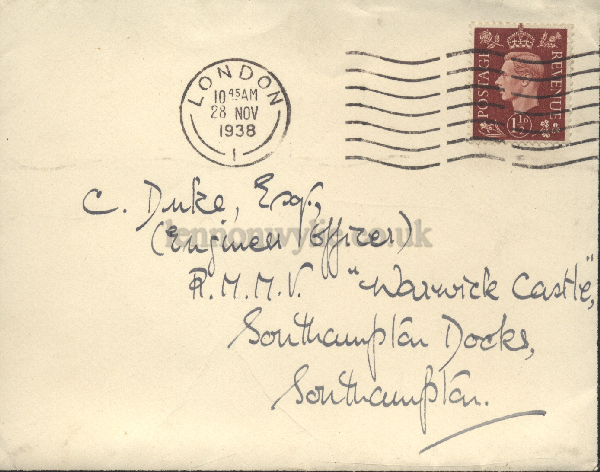 LONDON
10 45 AM
28 NOV
1938
1
POSTAGE REVENUE
1½D
C. Duke, Esq.,
(Engineer Officer)
lennonwylie.co.uk
R.M.M.V. "Warwick Castle",
Southampton Docks,
Southampton.